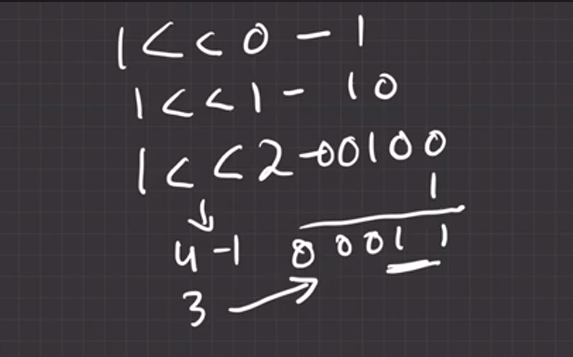 1 << 0 - 1
1 << 1 - 10
1 << 2 - 00100
1
4 - 1 00011
3